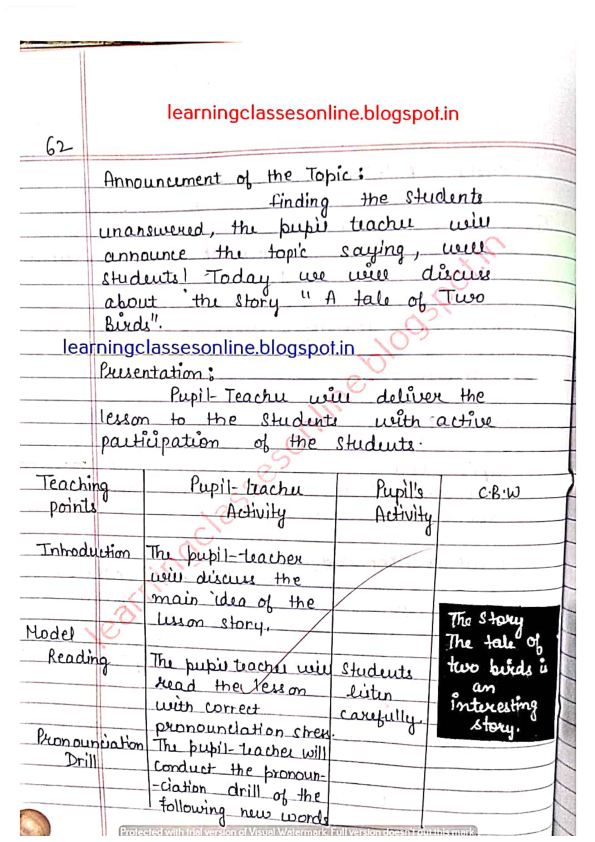 learningclassesonline.blogspot.in
62
Announcement of the Topic :
finding the students
unanswered, the pupil teacher will
announce the topic saying, well
students! Today we will discuss
about the story " A tale of Two
Birds".
learningclassesonline.blogspot.in
Presentation :
Pupil- Teacher will deliver the
lesson to the students with active
participation of the students.
Teaching points
Pupil- teacher Activity
Pupil's Activity
C.B.W
Introduction
The pupil-teacher
will discuss the
main idea of the
lesson story.
Model
Reading
The pupil teacher will
read the lesson
with correct
pronounciation stress.
Students
listen
carefully.
The Story
The tale of
two birds is
an
interesting
story.
Pronounciation
Drill
The pupil-teacher will
conduct the pronoun-
-ciation drill of the
following new words
learningclassesonline.blogspot.in
Protected with trial version of Visual Watermark. Full version doesn't put this mark.